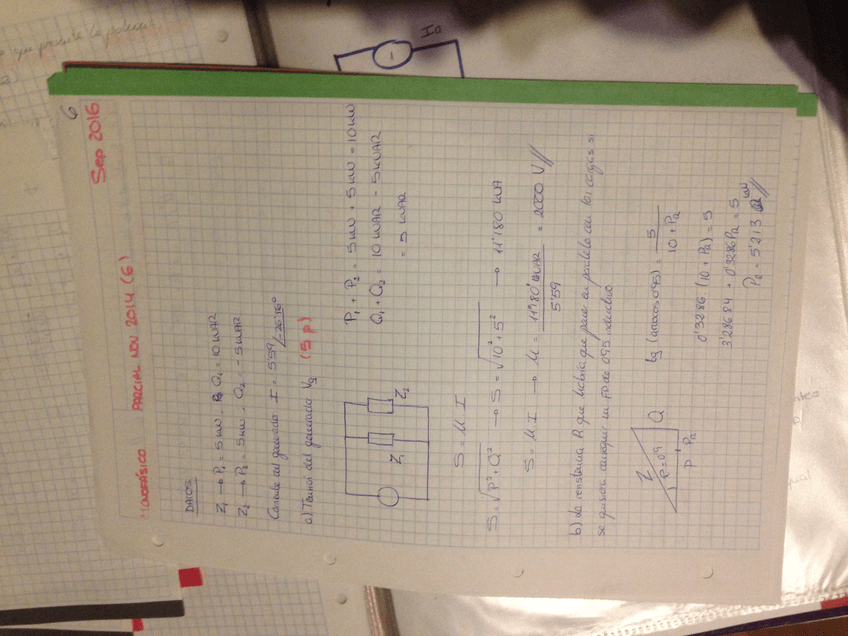 6
Sep 2016
MONOFÁSICO PARCIAL NOV 2014 (6)
DATOS
Z₁ → P₁ = 5 kW . Q₁ = 10 kVAR
Z₂ → P₂ = 5 kW . Q₂ = -5 kVAR
I = 5'59
a) Tension del generador Vg (5 p)
P₁ + P₂ = 5 kW + 5 kW = 10 kW
Q₁ + Q₂ = 10 kVAR - 5 kVAR
= 5 kVAR
Z₁
Z₂
S = U . I
S = √P² + Q² → S = √10² + 5² → 11'180 kVA
S = U . I → U = / 5'59 = 2000 V //
b) La resistencia R que habria que poner en paralelo con las cargas si
se quisiera conseguir un FP de 0'95 inductivo
Q
tg (arccos 0'95) = 5 / 10 + PR
0'3286 (10 + PR) = 5
+ 0'3286 PR = 5
PR = 5'213 kW //
I₀